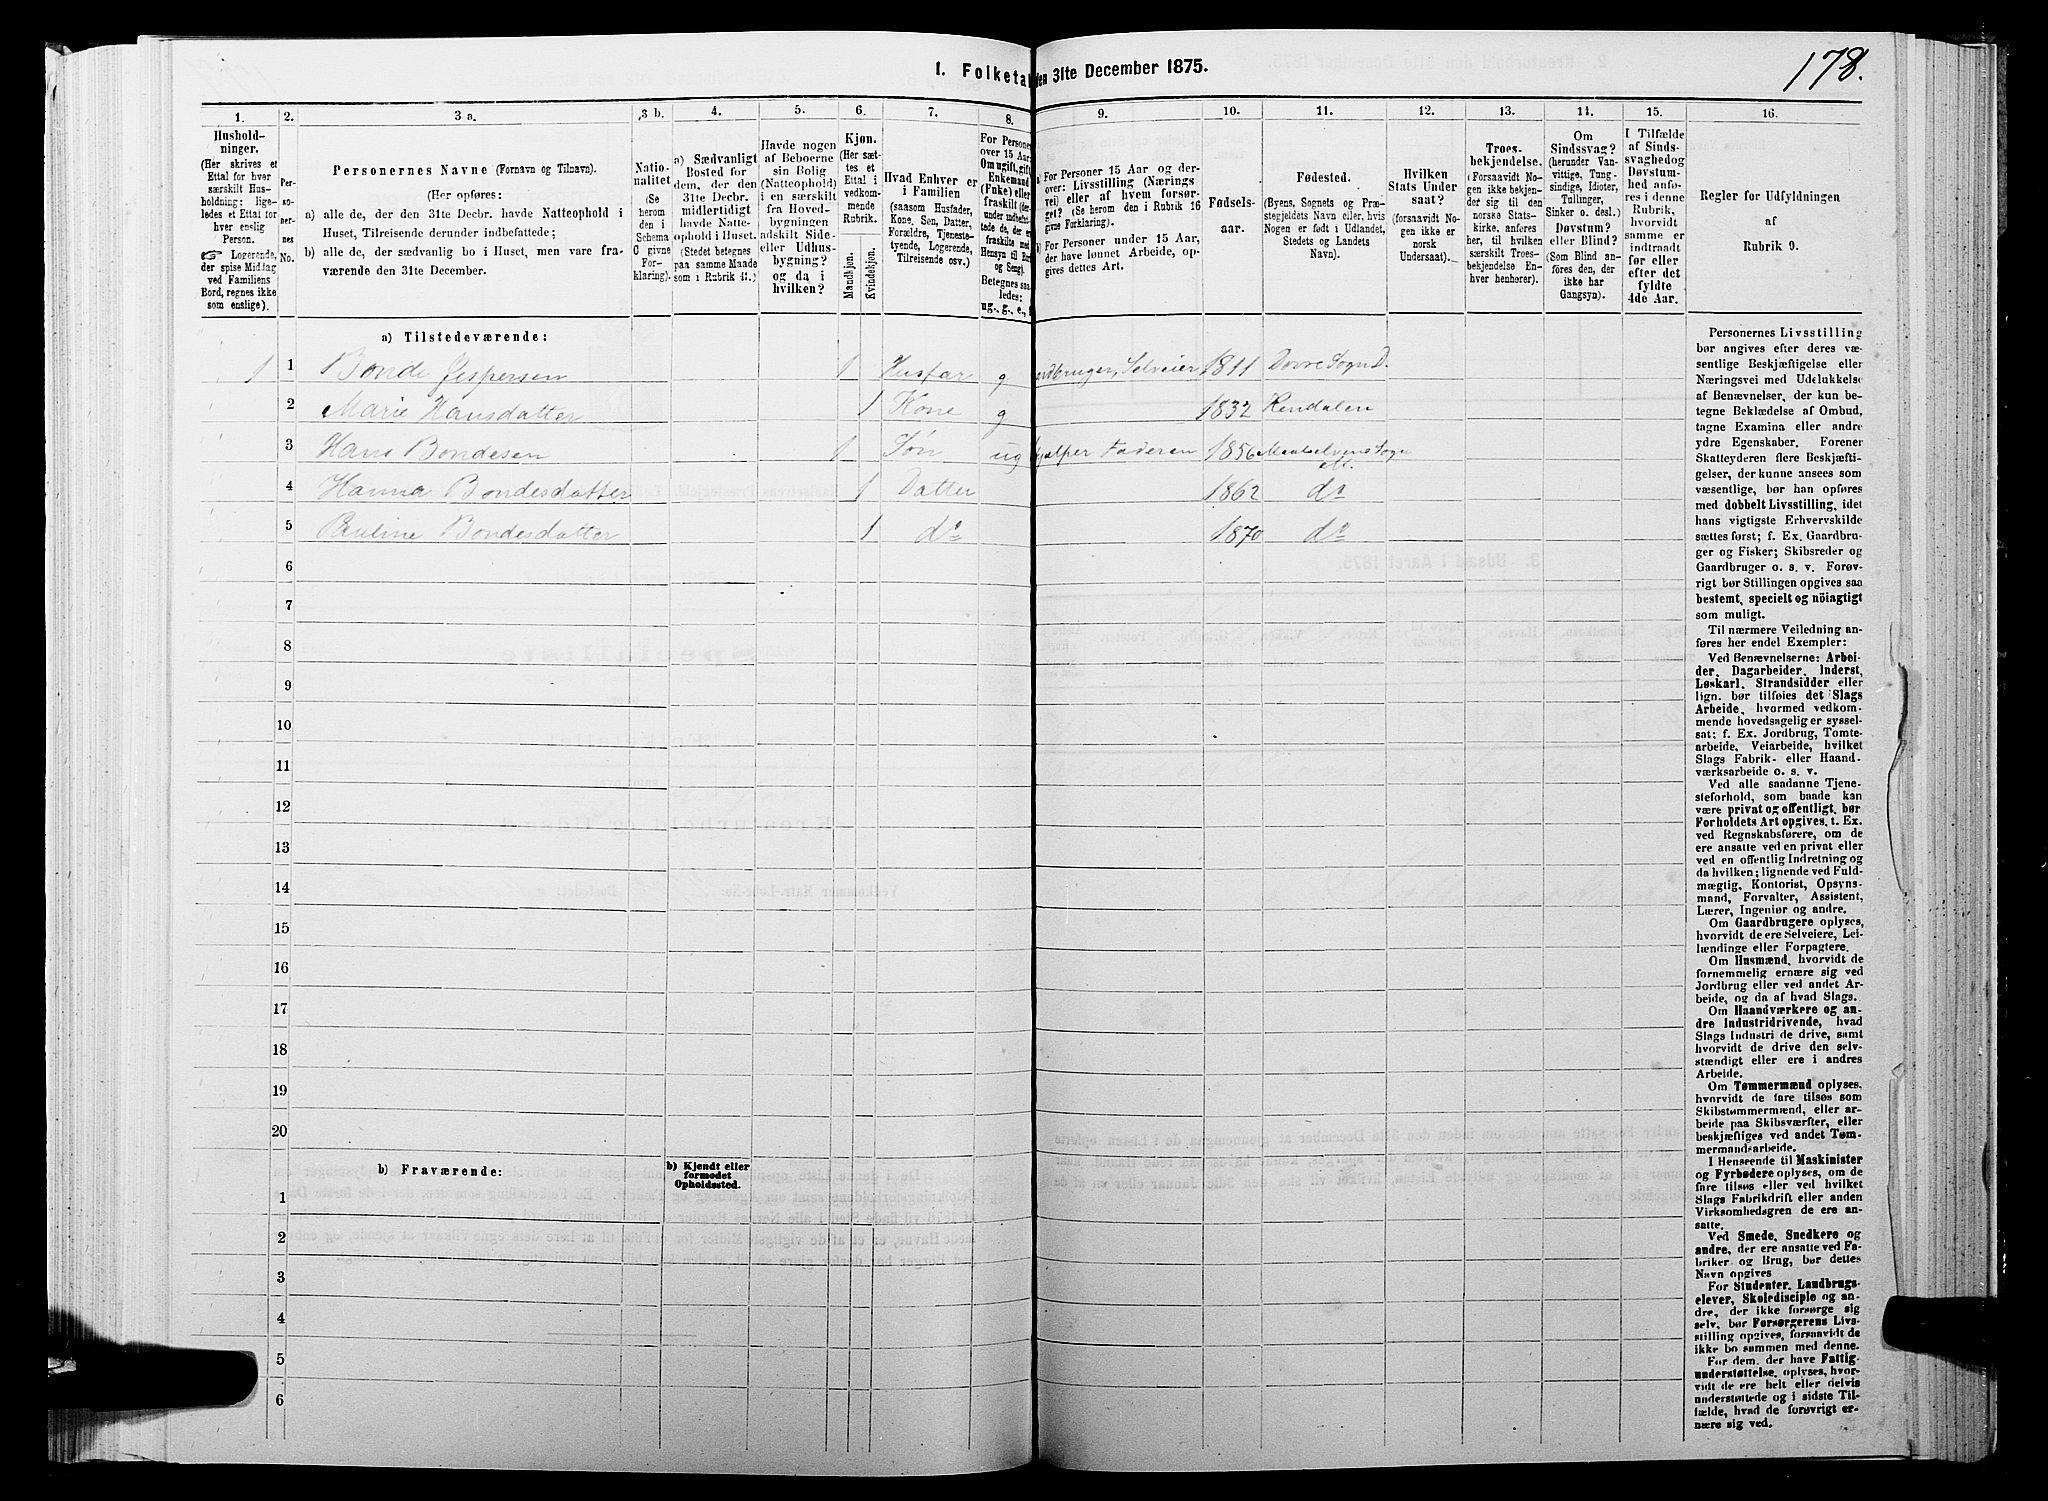 178.
1. Folketal den 31te December 1875.
1.
2.
3 a.
3 b.
4.
5.
6.
7.
8.
9.
10.
11.
12.
13.
14.
15.
16.
Hushold-
ninger.
(Her skrives et
Ettal for hver
særskilt Hus-
holdning; lige-
ledes et Ettal for
hver enslig
Person.
☞ Logerende,
der spise Middag
ved Familiens
Bord, regnes ikke
som enslige).
Per-
so-
ner-
nes
No.
Personernes Navne (Fornavn og Tilnavn).
(Her opføres:
a) alle de, der den 31te Decbr. havde Natteophold i
Huset, Tilreisende derunder indbefattede;
b) alle de, der sædvanlig bo i Huset, men vare fra-
værende den 31te December.
Natio-
nalitet
(Se
herom
den i
Schema
C givne
For-
klaring).
a) Sædvanligt
Bosted for
dem, der den
31te Decbr.
midlertidigt
havde Natte-
ophold i Huset.
(Stedet betegnes
paa samme Maade
som i Rubrik 11.)
Havde nogen
af Beboerne
sin Bolig
(Natteophold)
i en særskilt
fra Hoved-
bygningen
adskilt Side-
eller Udhus-
bygning?
og da i
hvilken?
Kjøn.
(Her sæt-
tes et
Ettal i
vedkom-
mende
Rubrik.
Mandkjøn.
Kvindekjøn.
Hvad Enhver er
i Familien
(saasom Husfader,
Kone, Søn, Datter,
Forældre, Tjeneste-
tyende, Logerende,
Tilreisende osv.)
For Personer
over 15 Aar:
Om ugift, gift,
Enkemand
(Enke) eller
fraskilt
Hensyn til Bord
og Seng).
Betegnes saa-
ledes:
ug., g., e., f.
a) For Personer 15 Aar og der-
over: Livsstilling (Nærings
vei) eller af hvem forsør-
get? (Se herom den i Rubrik 16
givne Forklaring).
b) For Personer under 15 Aar,
der have lønnet Arbeide, op-
gives dettes Art.
Fødsels-
aar.
Fødested.
(Byens, Sognets og Præ-
stegjeldets Navn eller, hvis
Nogen er født i Udlandet,
Stedets og Landets
Navn).
Hvilken
Stats Under
saat?
(forsaavidt No-
gen ikke er
norsk
Undersaat).
Troes-
bekjendelse.
(Forsaavidt Nog
en ikke bekjen-
der sig til den
norske Stats-
kirke, anføres
her, til hvilken
særskilt Troes-
bekjendelse En-
hver henhører).
Om
Sindssvag?
(herunder Van-
vittige, Tung-
sindige, Idioter,
Tullinger,
Sinker o. desl.)
Døvstum?
eller Blind?
(Som Blind an-
føres den, der
ikke har
Gangsyn).
I Tilfælde
af Sinds-
svaghed og
Døvstum-
hed anfø-
res i denne
Rubrik,
hvorvidt
samme er
indtraadt
før eller
efter det
fyldte
4de Aar.
Regler for Udfyldningen
af
Rubrik 9.
a) Tilstedeværende:
1 1 Bonde Jespersen 1 Husfar g Selveier 1811 Dovre Sogn D.
2 Marie Hansdatter 1 Kone g 1832 Rendalen
3 Hans Bondesen 1 Søn ug hjælper Faderen 1856 Maalselvens Sogn
M.
4 Hanna Bondesdatter 1 Datter 1862 do
5 Pauline Bondesdatter 1 do 1870 do
6
7
8
9
10
11
12
13
14
15
16
17
18
19
20
b) Fraværende:
b) Kjendt eller
formodet
Opholdssted.
1
2
3
4
5
6
Personernes Livsstilling
bør angives efter deres væ-
sentlige Beskjæftigelse eller
Næringsvei med Udelukkelse
af Benævnelser, der kun be-
tegne Beklædelse af Ombud,
tagne Examina eller andre
ydre Egenskaber. Forener
Skatteyderen flere Beskjæfti-
gelser, der kunne ansees som
væsentlige, bør han opføres
med dobbelt Livsstilling, idet
hans vigtigste Erhvervskilde
sættes først; f. Ex. Gaardbru-
ger og Fisker; Skibsreder og
Gaardbruger o. s. v. Forøv-
rigt bør Stillingen opgives saa
bestemt, specielt og nöiagtigt
som muligt.
Til nærmere Veiledning an-
føres her endel Exempler:
Ved Benævnelserne: Arbei-
der, Dagarbeider, Inderst,
Løskarl, Strandsidder eller
lign. bør tilføies det Slags
Arbeide, hvormed vedkom-
mende hovedsagelig er syssel-
sat; f. Ex. Jordbrug, Tomte-
arbeide, Veiarbeide, hvilket
Slags Fabrik- eller Haand-
værksarbeide o. s. v.
Ved alle saadanne Tjene-
steforhold, som baade kan
være privat og offentligt, bør
Forholdets Art opgives, f. Ex.
ved Regnskabsførere, om de
ere ansatte ved en privat eller
ved en offentlig Indretning og
da hvilken; lignende ved Fuld-
mægtig, Kontorist, Opsyns-
mand, Forvalter, Assistent,
Lærer, Ingeniør og andre.
Om Gaardbrugere oplyses,
hvorvidt de ere Selveiere, Lei-
lændinge eller Forpagtere.
Om Husmænd, hvorvidt de
fornemmelig ernære sig ved
Jordbrug eller ved andet Ar-
beide, og da af hvad Slags.
Om Haandværkere og an-
dre Industridrivende, hvad
Slags Industri de drive, samt
hvorvidt de drive den selv-
stændigt eller ere i andres
Arbeide.
Om Tømmermænd oplyses,
hvorvidt de fare tilsøs som
Skibstømmermænd, eller ar-
beide paa Skibsværfter, eller
beskjæftiges ved andet Tøm-
mermandsarbeide.
I Henseende til Maskinister
og Fyrbødere oplyses, om de
fare tilsøs eller ved hvilket
Slags Fabrikdrift eller anden
Virksomhedsgren de ere an-
satte.
Ved Smede, Snedkere og
andre, der ere ansatte ved Fa-
briker og Brug, bør dettes
Navn opgives
For Studenter, Landbrugs-
elever, Skoledisciple og an-
dre, der ikke forsørge sig
selv, bør Forsørgerens Livs-
stilling opgives, forsaavidt de
ikke bo sammen med denne.
For dem, der have Fattig-
understøttelse, oplyses, hvor-
vidt de ere helt eller delvis
understøttede og i sidste Til-
fælde, hvad de forøvrigt er-
nære sig ved.